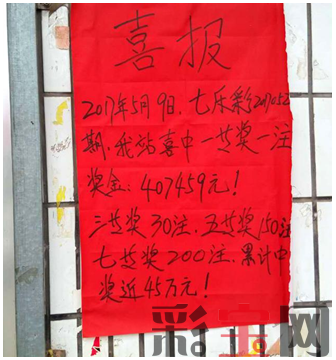 喜报
2017年5月9日.七乐彩2017052
期,我站喜中一等奖一注
奖金:407459元!
三等奖30注.五等奖150注
七等奖200注.累计中
奖近45万元!
彩宝网